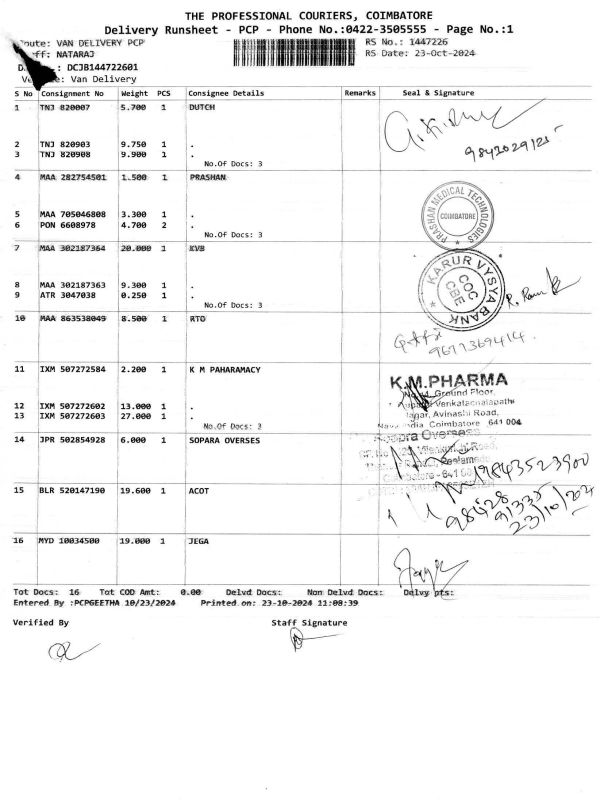 THE PROFESSIONAL COURIERS, COIMBATORE
Delivery Runsheet - PCP - Phone No.:0422-3505555 - Page No.:1
oute: VAN DELIVERY PCP
ff: NATARAJ
RS No.: 1447226
RS Date: 23-Oct-2024
D : DCJB144722601
Ve e: Van Delivery
S No Consignment No Weight PCS Consignee Details Remarks Seal & Signature
1 TNJ 820007 5.700 1 DUTCH
9842029121
2 TNJ 820903 9.750 1 .
3 TNJ 820908 9.900 1 .
No.Of Docs: 3
4 MAA 282754501 1.500 1 PRASHAN
PRASHAN MEDICAL TECHNOLOGIES
COIMBATORE
5 MAA 705046808 3.300 1 .
6 PON 6608978 4.700 2 .
No.Of Docs: 3
7 MAA 302187364 20.000 1 KVB
KARUR VYSYA BANK
COC
CBE
8 MAA 302187363 9.300 1 .
9 ATR 3047038 0.250 1 .
No.Of Docs: 3
10 MAA 863538049 8.500 1 RTO
9677369414
11 IXM 507272584 2.200 1 K M PAHARAMACY
K.M.PHARMA
Ground Floor,
Venkatachalapathi
Nagar, Avinashi Road,
Nava India Coimbatore 641 004
12 IXM 507272602 13.000 1 .
13 IXM 507272603 27.000 1 .
No.Of Docs: 3
14 JPR 502854928 6.000 1 SOPARA OVERSES
Sopara Overseas
9843523900
15 BLR 520147190 19.600 1 ACOT
98428
91335
23/10/2024
16 MYD 10034500 19.000 1 JEGA
Tot Docs: 16 Tot COD Amt: 0.00 Delvd Docs: Non Delvd Docs: Delvy pts:
Entered By :PCPGEETHA 10/23/2024 Printed on: 23-10-2024 11:08:39
Verified By Staff Signature